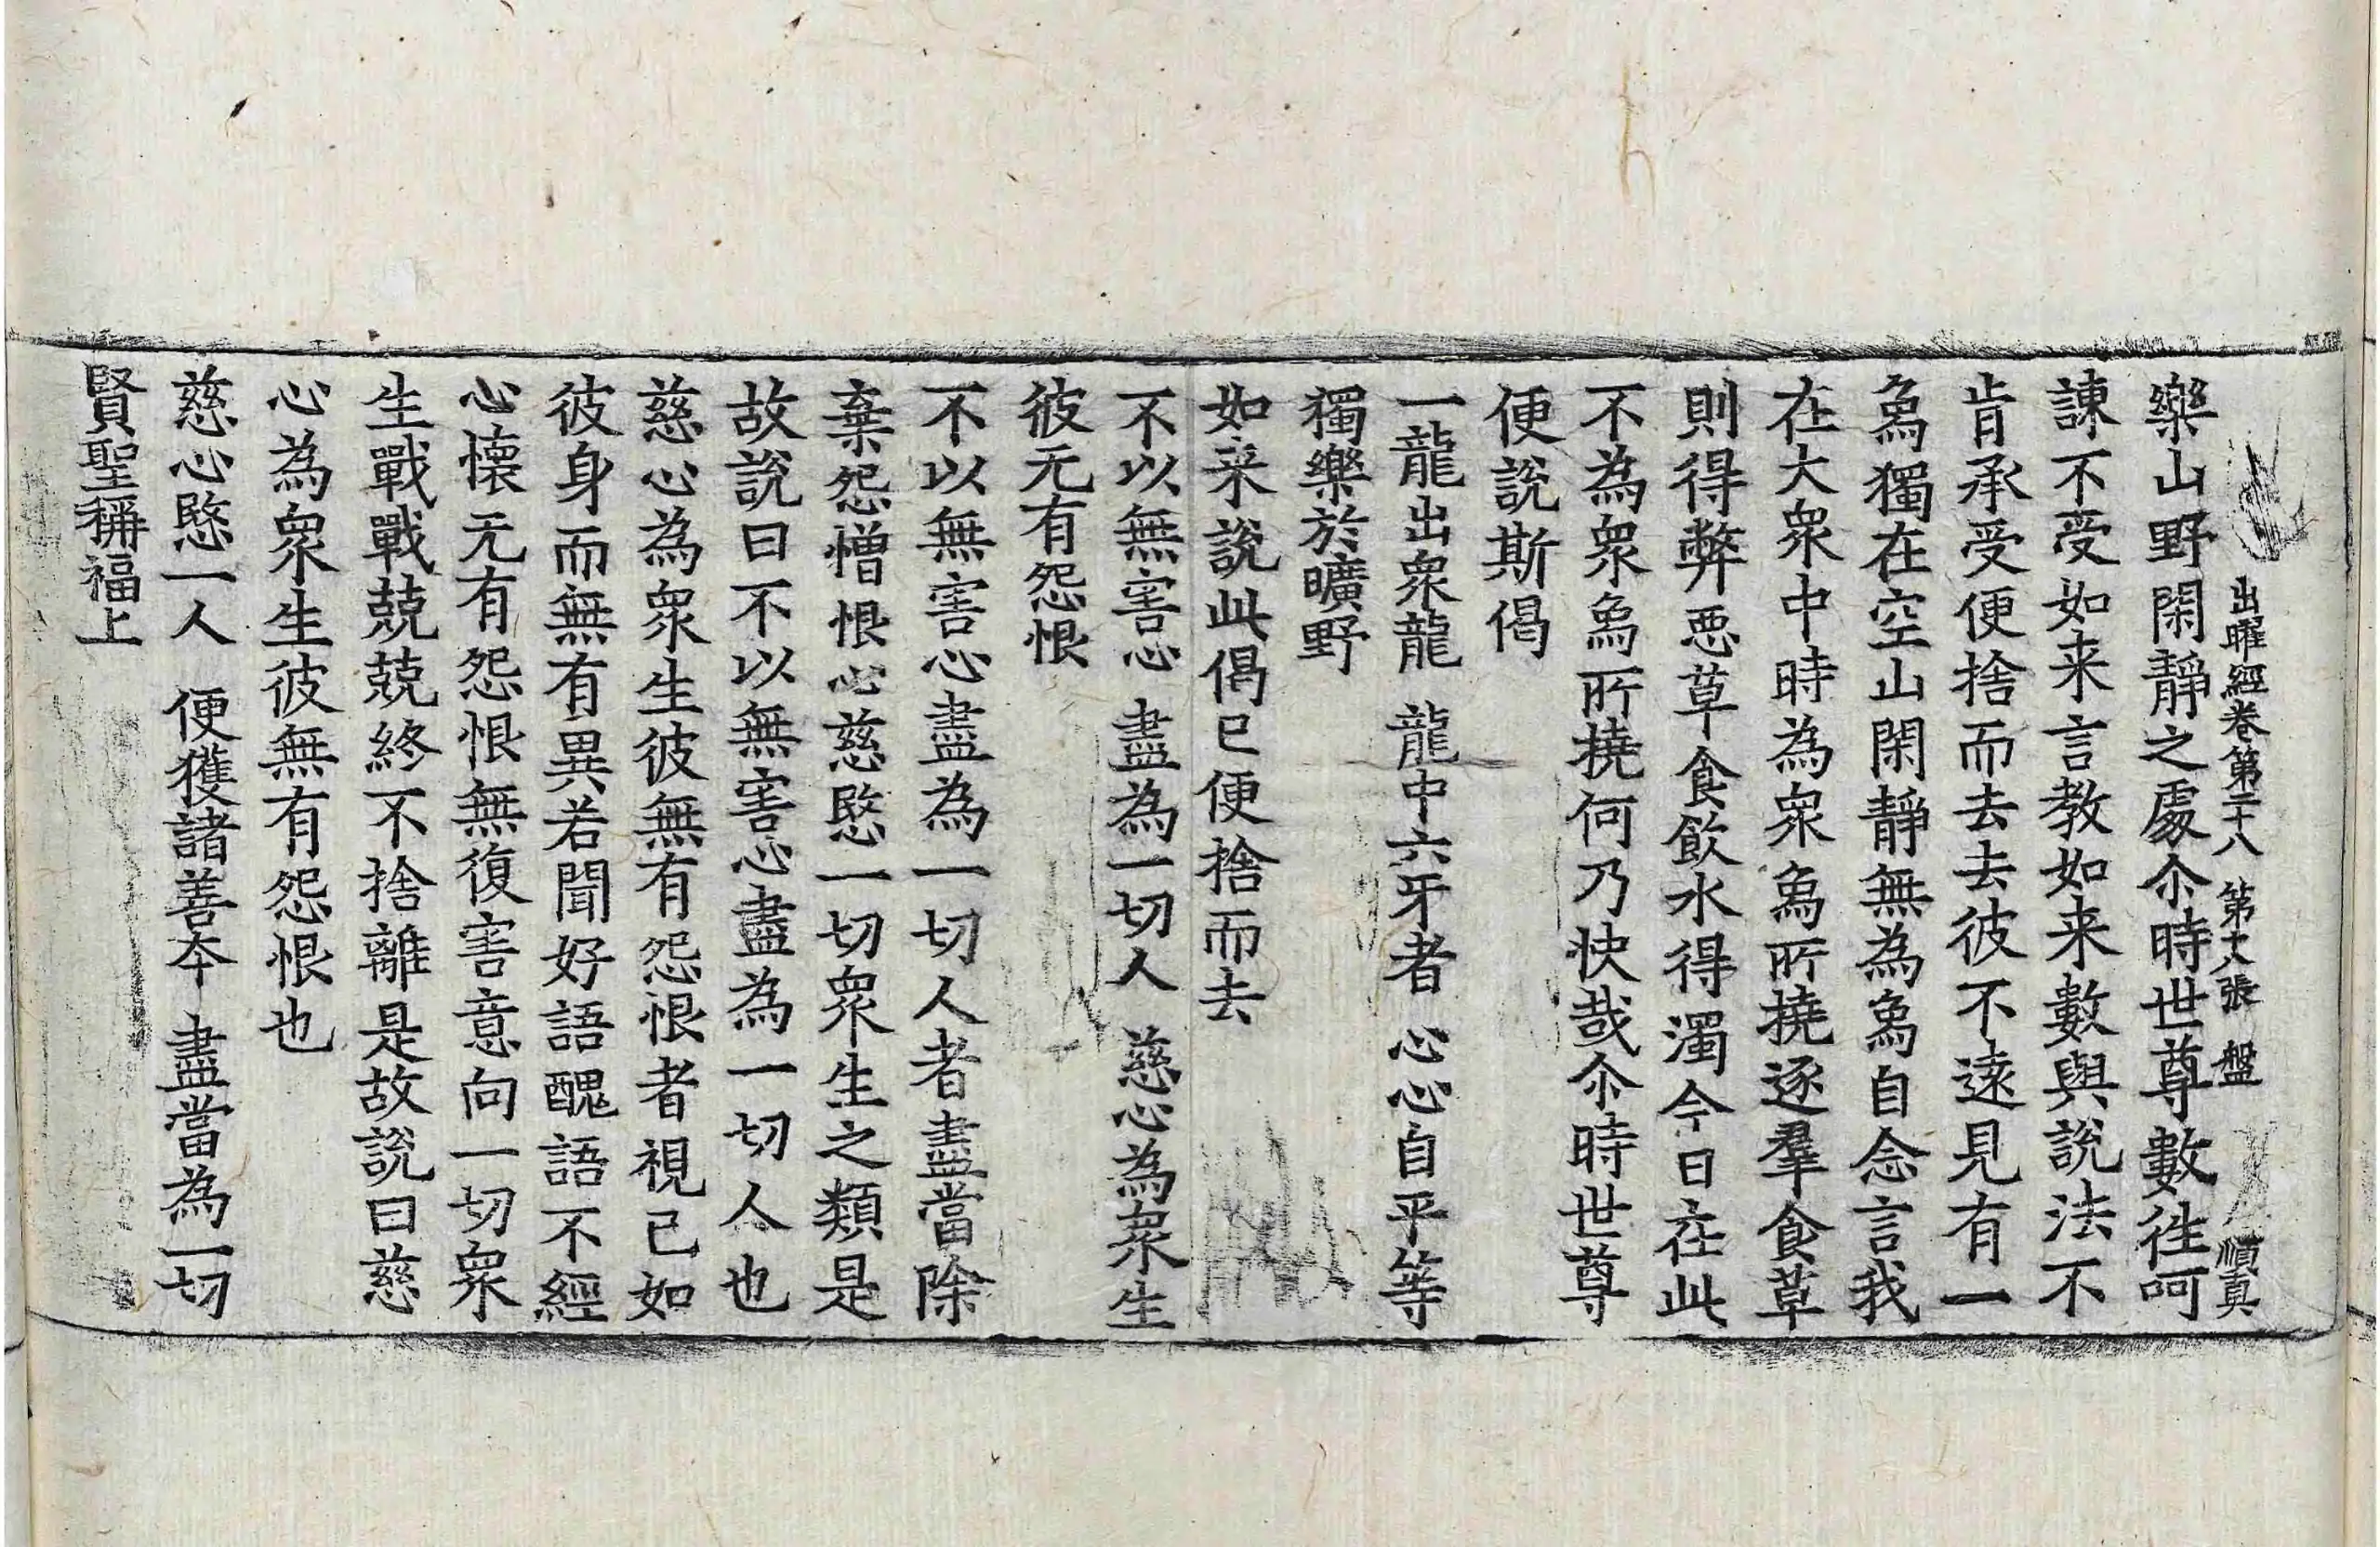 出曜經卷第二十八 第十八張 盤 順真
樂山野閑靜之處尒時世尊數往呵
諫不受如来言教如来數與說法不
肯承受便捨而去去彼不遠見有一
𤉢獨在空山閑靜無為𤉢自念言我
在大衆中時為衆𤉢所撓逐羣食草
則得弊惡草食飲水得濁今日在此
不為衆𤉢所撓何乃快哉尒時世尊
便說斯偈
一龍出衆龍 龍中六牙者 心心自平等
獨樂於曠野
如来說此偈已便捨而去
不以無害心 盡為一切人 慈心為衆生
彼无有怨恨
不以無害心盡為一切人者盡當除
棄怨憎恨心慈愍一切衆生之類是
故說曰不以無害心盡為一切人也
慈心為衆生彼無有怨恨者視己如
彼身而無有異若聞好語醜語不經
心懷无有怨恨無復害意向一切衆
生戰戰兢兢終不捨離是故說曰慈
心為衆生彼無有怨恨也
慈心愍一人 便獲諸善本 盡當為一切
賢聖稱福上